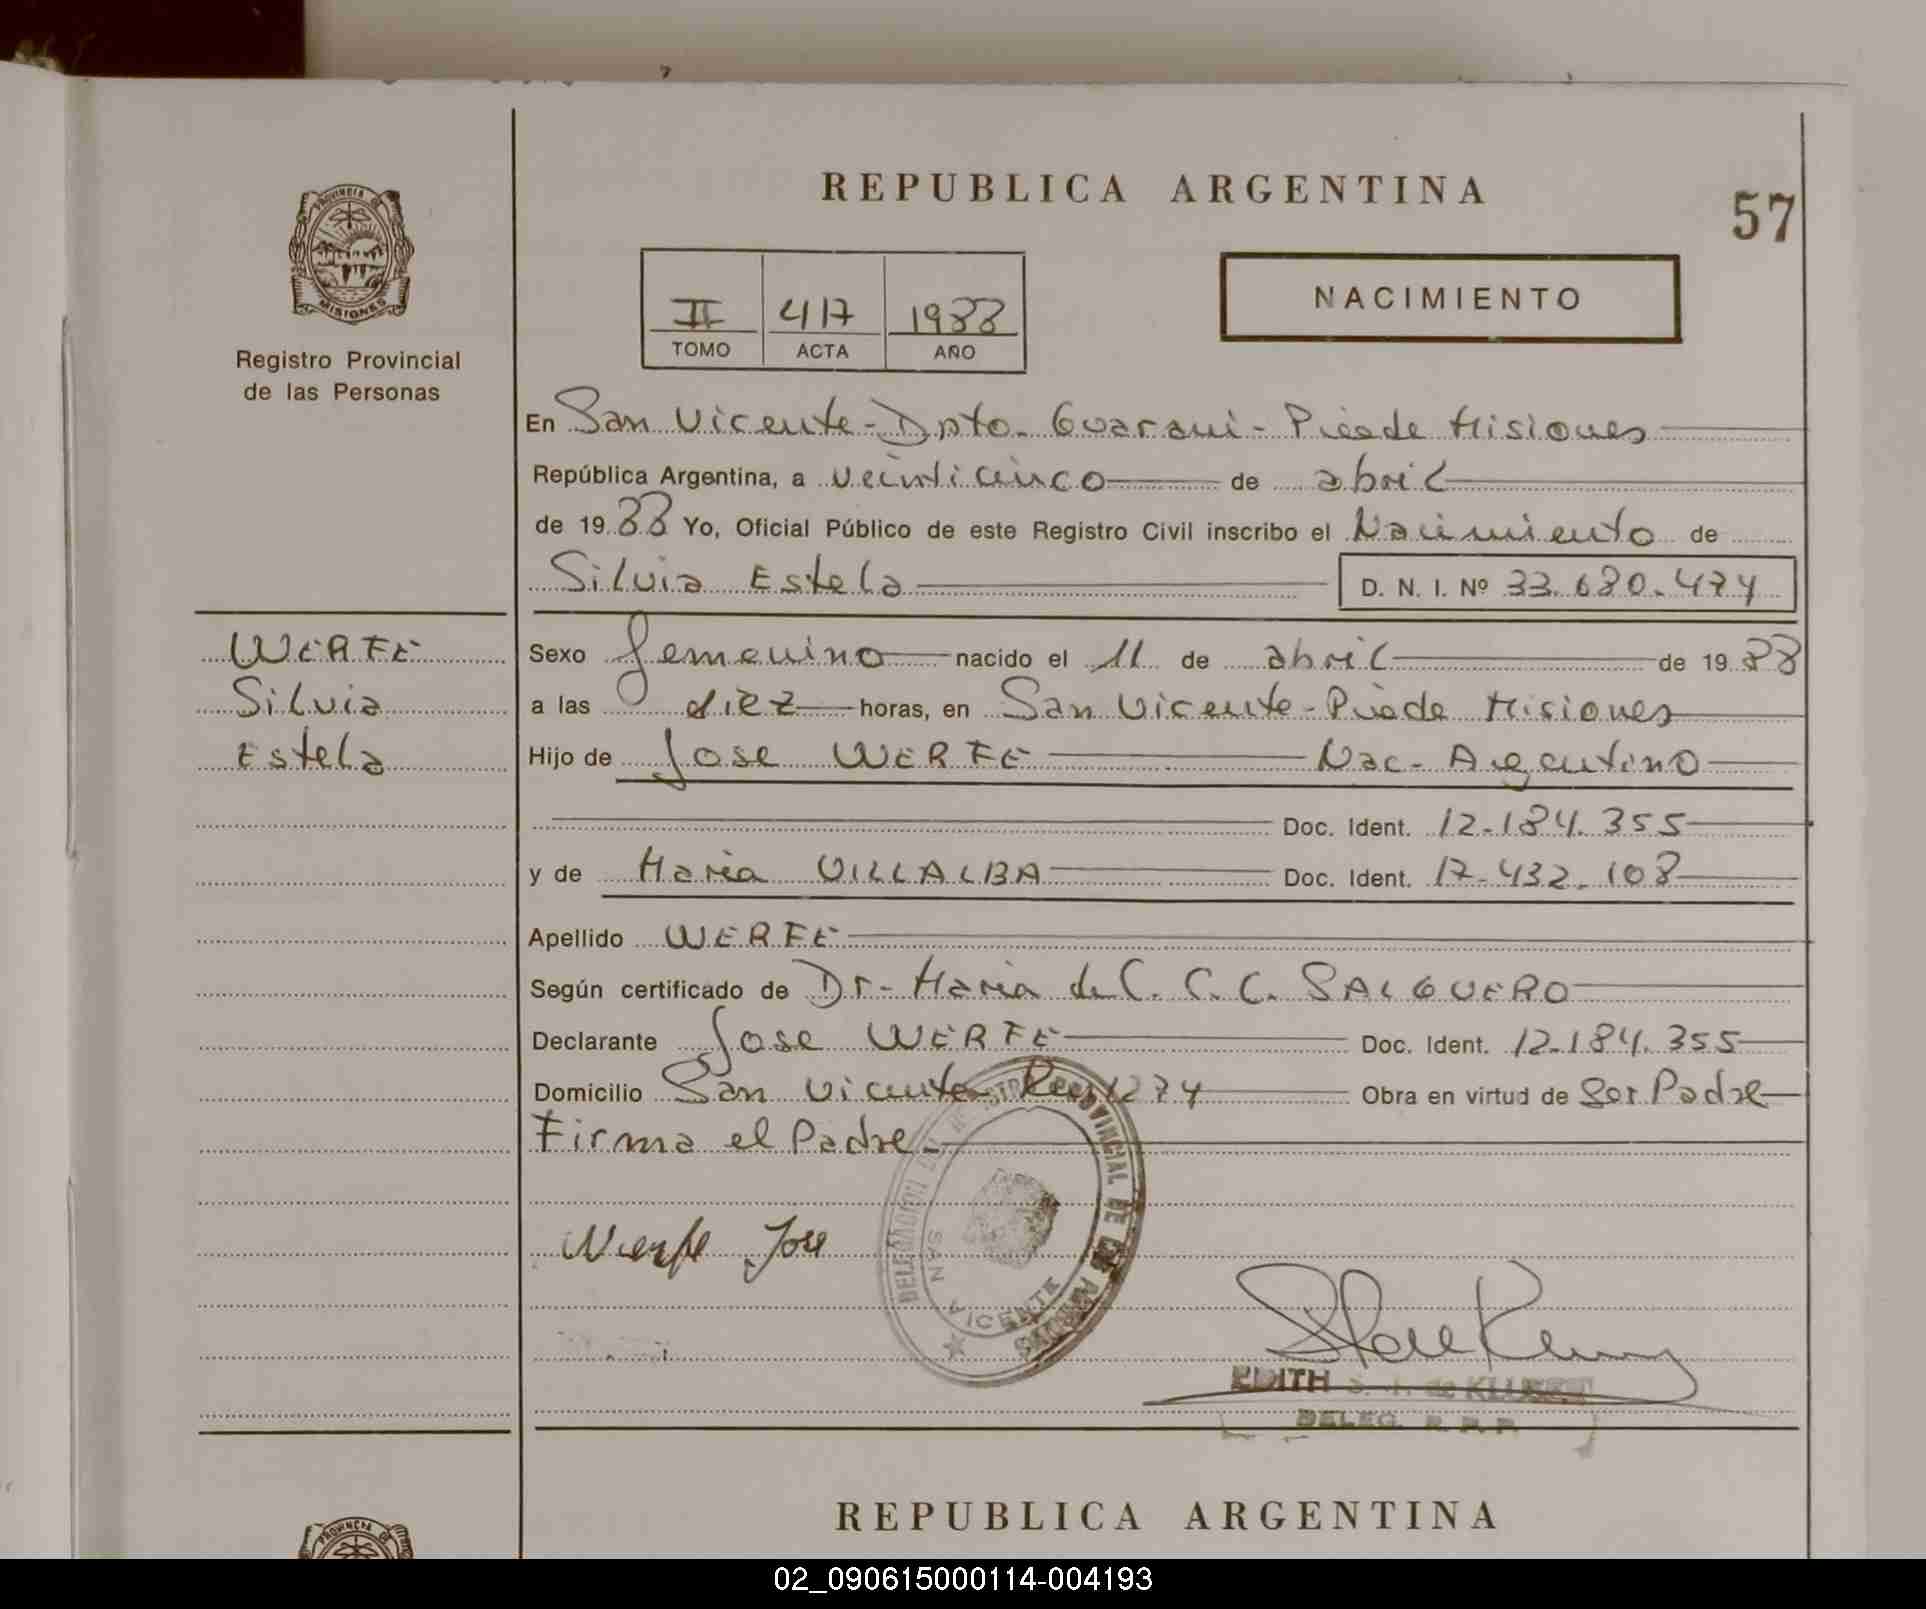 REPUBLICA ARGENTINA
57
PROVINCIA DE
MISIONES
Registro Provincial
de las Personas
II 417 1988
TOMO ACTA AÑO
NACIMIENTO
En San Vicente - Dpto. Guarani - Pcia de Misiones
República Argentina, a veinticinco de abril
de 1988 Yo, Oficial Público de este Registro Civil inscribo el Nacimiento de
Silvia Estela D. N. I. Nº 33.680.474
WERFE
Silvia
Estela
Sexo femenino nacido el 11 de abril de 1988
a las diez horas, en San Vicente - Pcia de Misiones
Hijo de Jose WERFE Nac. Argentino
Doc. Ident. 12.184.355
y de Maria VILLALBA Doc. Ident. 17.432.108
Apellido WERFE
Según certificado de Dr. Maria del C. C. C. SALGUERO
Declarante Jose WERFE Doc. Ident. 12.184.355
Domicilio San Vicente 1274 Obra en virtud de Ser Padre
Firma el Padre.
DELEGACION DEL REGISTRO PROVINCIAL DE LAS PERSONAS
SAN VICENTE
Werfe Jose
EDITH de
DELEG. R. P. P.
REPUBLICA ARGENTINA
PROVINCIA DE
02_090615000114-004193